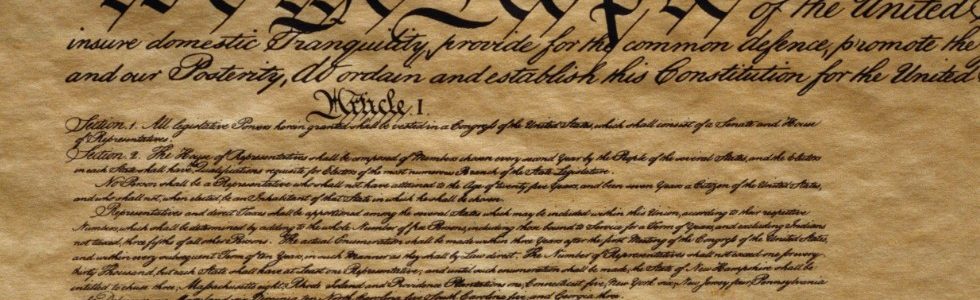 We the People of the United
insure domestic Tranquility, provide for the common defence, promote the
and our Posterity, do ordain and establish this Constitution for the United
Article. I.
Section. 1. All legislative Powers herein granted shall be vested in a Congress of the United States, which shall consist of a Senate and House
of Representatives.
Section. 2. The House of Representatives shall be composed of Members chosen every second Year by the People of the several States, and the Electors
in each State shall have the Qualifications requisite for Electors of the most numerous Branch of the State Legislature.
No Person shall be a Representative who shall not have attained to the Age of twenty five Years, and been seven Years a Citizen of the United States,
and who shall not, when elected, be an Inhabitant of that State in which he shall be chosen.
Representatives and direct Taxes shall be apportioned among the several States which may be included within this Union, according to their respective
Numbers, which shall be determined by adding to the whole Number of free Persons, including those bound to Service for a Term of Years, and excluding Indians
not taxed, three fifths of all other Persons. The actual Enumeration shall be made within three Years after the first Meeting of the Congress of the United States,
and within every subsequent Term of ten Years, in such Manner as they shall by Law direct. The Number of Representatives shall not exceed one for every
thirty Thousand, but each State shall have at Least one Representative; and until such enumeration shall be made, the State of New Hampshire shall be
entitled to chuse three, Massachusetts eight, Rhode Island and Providence Plantations one, Connecticut five, New York six, New Jersey four, Pennsylvania
eight, Delaware one, Maryland six, Virginia ten, North Carolina five, South Carolina five, and Georgia three.